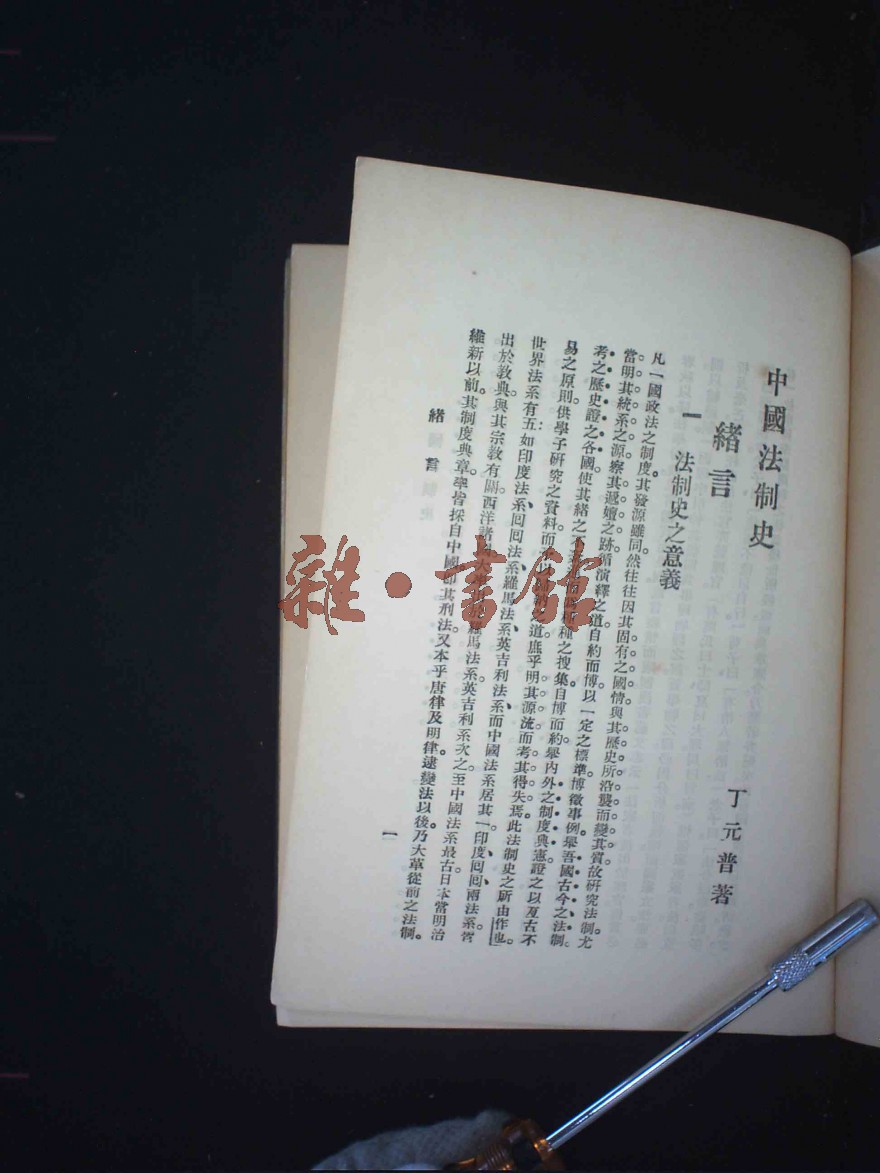 中國法制史
丁元普著
緒言
一 法制史之意義
凡一國政法之制度其發源雖同然往往因其固有之國情與其歷史所沿襲而變其質故研究法制尤
當明其統系之源察其遞嬗之跡循演釋之道自約而博以一定之標準博徵事例舉吾國古今之法制
考之歷史證之各國使其緒之不 種種之搜集自博而約舉內外之制度典憲證之以亙古不
易之原則供學子研究之資料而 之道庶乎明其源流而考其得失焉此法制史之所由作也
世界法系有五如印度法系回回法系羅馬法系英吉利法系而中國法系居其一印度回回兩法系皆
出於教典與其宗教有關西洋諸國大 羅馬法系英吉利系次之至中國法系最古日本當明治
維新以前其制度典章舉皆採自中國即其刑法又本乎唐律及明律逮變法以後乃大革從前之法制
緒言
一
雜·書館